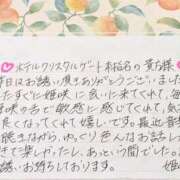 ♡ホテルクリスタルゲート本指名の貴方様♡
昨日はお誘い頂きありがとうございました
すぐに姫咲に会いに来てくれて、毎
咲の舌で敏感に感じてくれて、気
良くなってくれて嬉しいです。最近
聴きながら、ゆっくり色んなお話し
て楽しかったし、あっという間でした。
お誘いお待ちしております。 姫